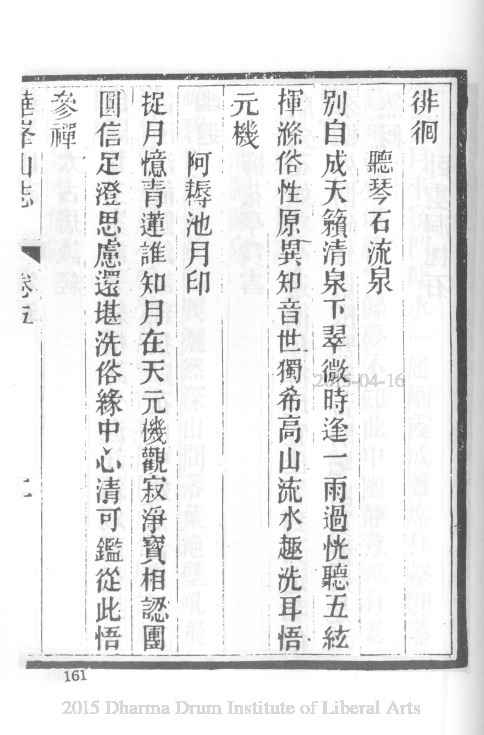 徘徊
聽琴石流泉
別自成天籟清泉下翠微時逢一雨過恍聽五絃
揮滌俗性原異知音世獨希高山流水趣洗耳悟
元機
阿耨池月印
捉月憶青蓮誰知月在天元機觀寂淨寶相認團
圓信足澄思慮還堪洗俗緣中心清可鑑從此悟
參禪
華峯山志 卷五
161
2015-04-16
2015 Dharma Drum Institute of Liberal Arts